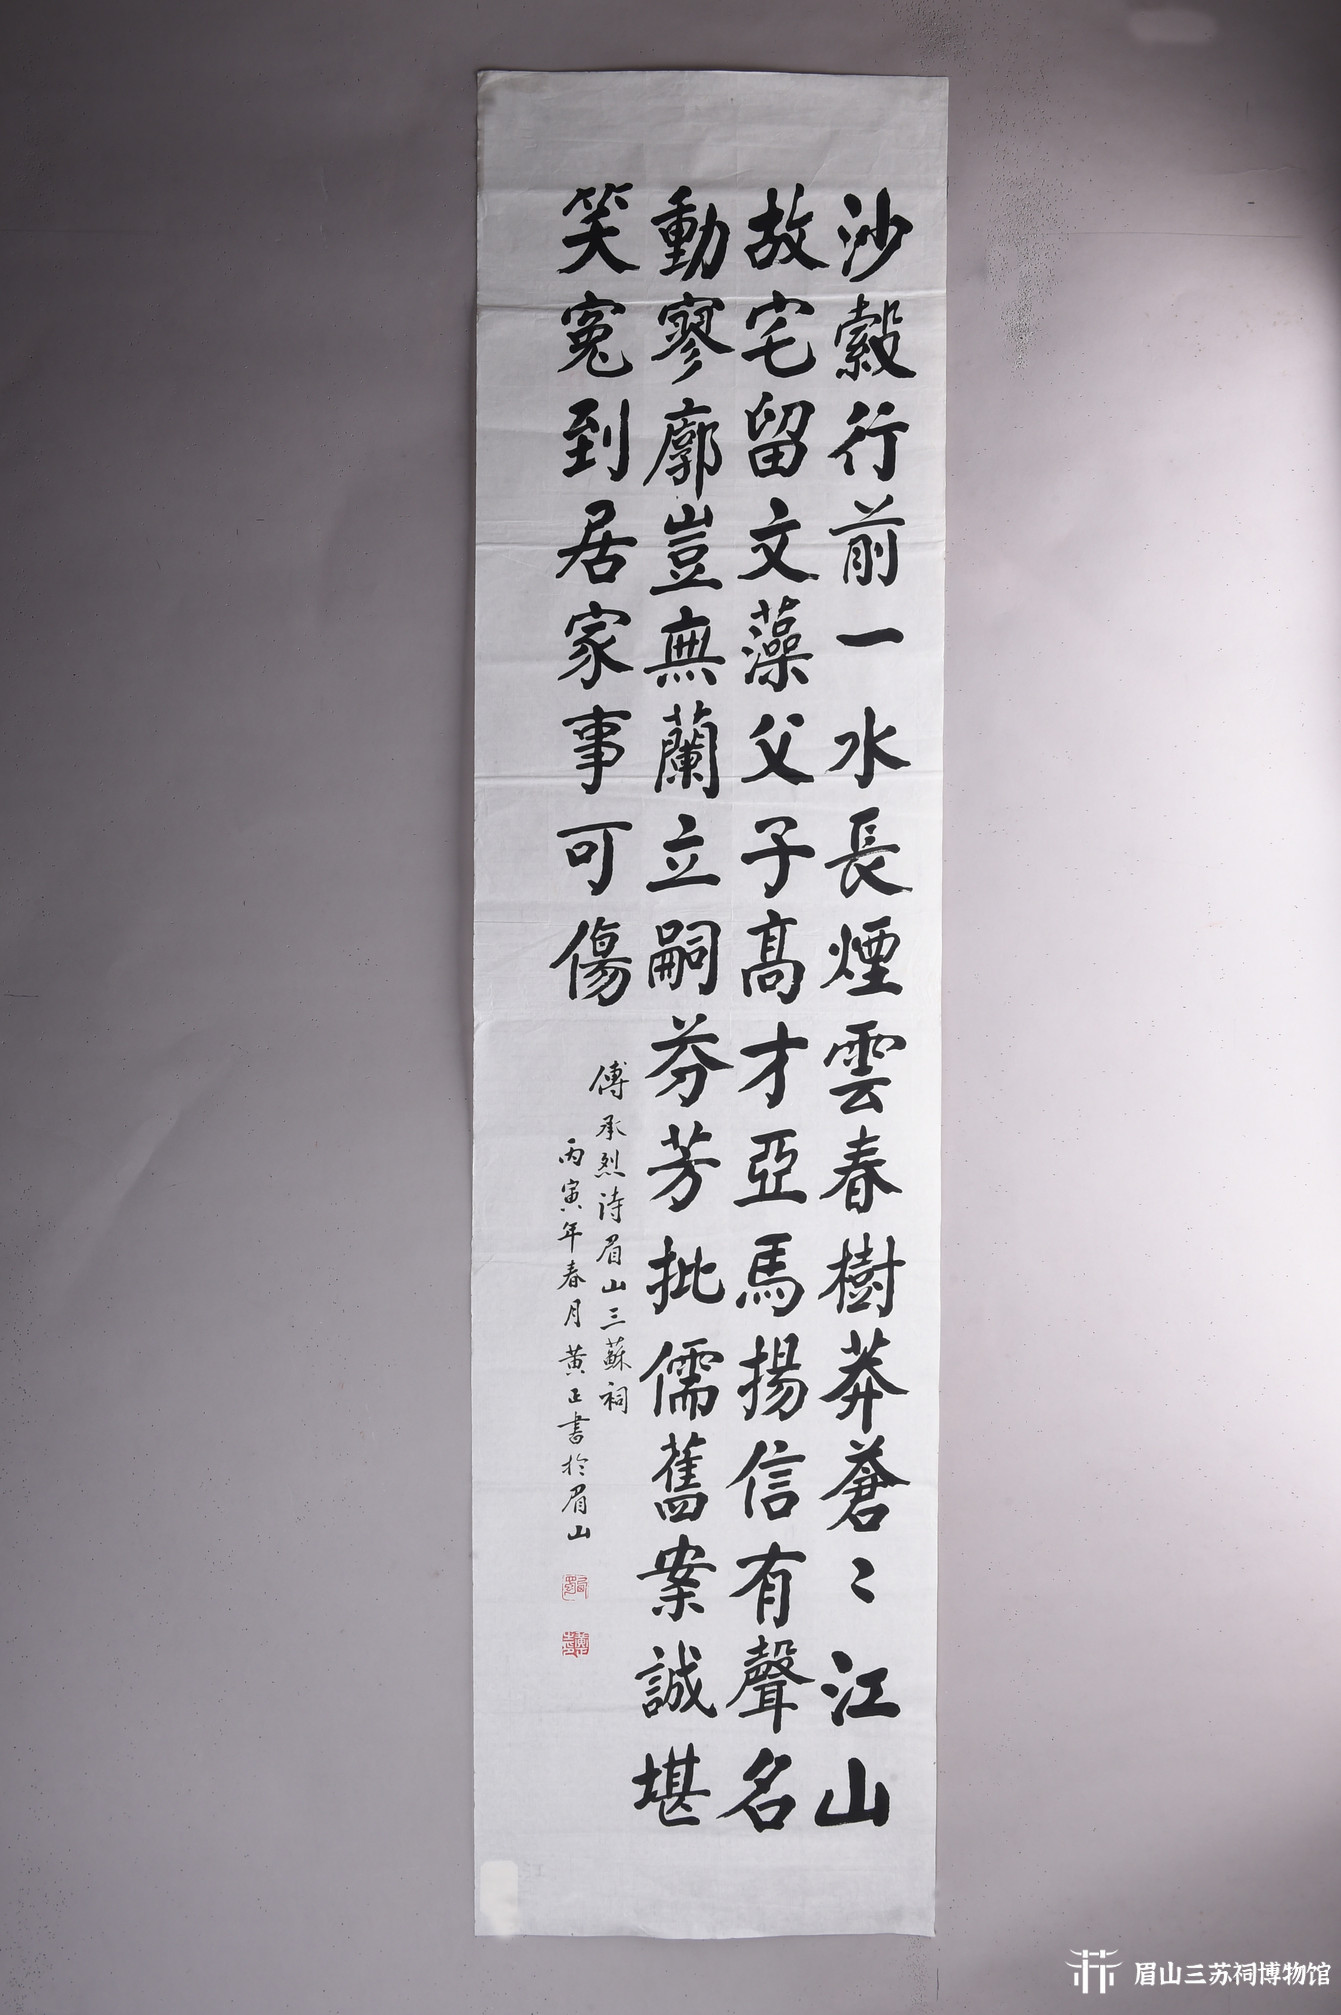 沙縠行前一水長煙雲春樹莽蒼〻江山
故宅留文藻父子高才亞馬揚信有聲名
動寥廓豈無蘭立嗣芬芳批儒舊案誠堪
笑冤到居家事可傷
傅承烈诗眉山三蘇祠
丙寅年春月黄正書於眉山
眉山三苏祠博物馆